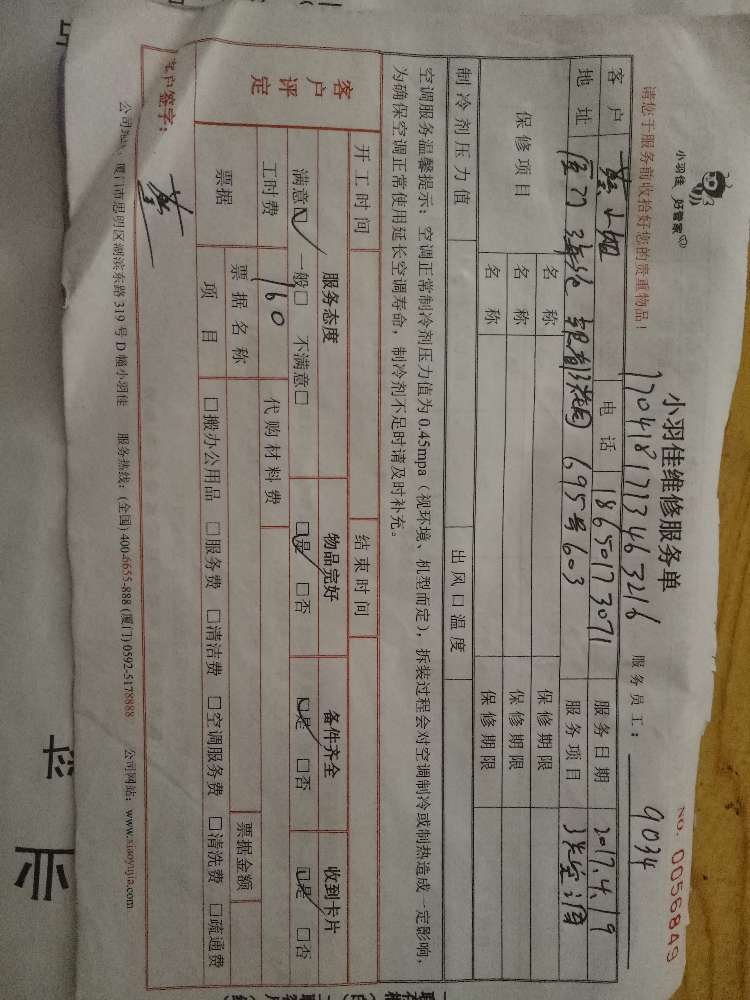 小羽佳 好管家
小羽佳维修服务单
NO. 0056849
请您于服务前收拾好您的贵重物品！
1704181713463216
服务员工： 9034
客户 蔡小姐 电话 18650173071 服务日期 2017.4.19
地址 厦门 695号603 服务项目
保修项目 名称 保修期限
名称 保修期限
名称 保修期限
制冷剂压力值 出风口温度
空调服务温馨提示：空调正常制冷剂压力值为0.45mpa（视环境、机型而定），拆装过程会对空调制冷或制热造成一定影响，
为确保空调正常使用延长空调寿命，制冷剂不足时请及时补充。
开工时间 结束时间
客户评定
服务态度 物品完好 备件齐全 收到卡片
满意☑ 一般□ 不满意□ ☑是 □否 ☑是 □否 ☑是 □否
工时费 160 代购材料费
票据 票据名称 票据金额
项目 □搬办公用品 □服务费 □清洁费 □空调服务费 □清洗费 □疏通费
客户签字： 蔡
公司地址：厦门市思明区湖滨东路319号D幢小羽佳 服务热线：(全国)400-6655-888 (厦门)0592-5178888 公司网站：www.xiaoyujia.com